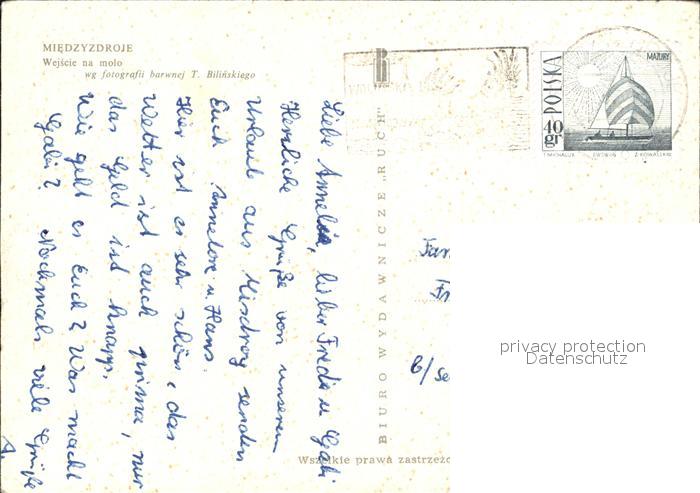 MIĘDZYZDROJE
Wejście na molo
wg fotografii barwnej T. Bilińskiego
BIURO WYDAWNICZE "RUCH"
POLSKA
MAZURY
40 gr
T. MICHALUK PWPW/65 Z. KOWALSKI
Liebe Annelie, lieber Fredi u. Gabi
Herzliche Grüße von unserem
Urlaub aus Misdroy senden
Euch Annelore u. Hans.
Hier ist es sehr schön, das
Wetter ist auch prima, nur
das Geld ist knapp.
Wie geht es Euch? Was macht
Gabi? Nochmals viele Grüße
A.
Fam
Fr
b/Se
privacy protection
Datenschutz
Wszelkie prawa zastrzeżo